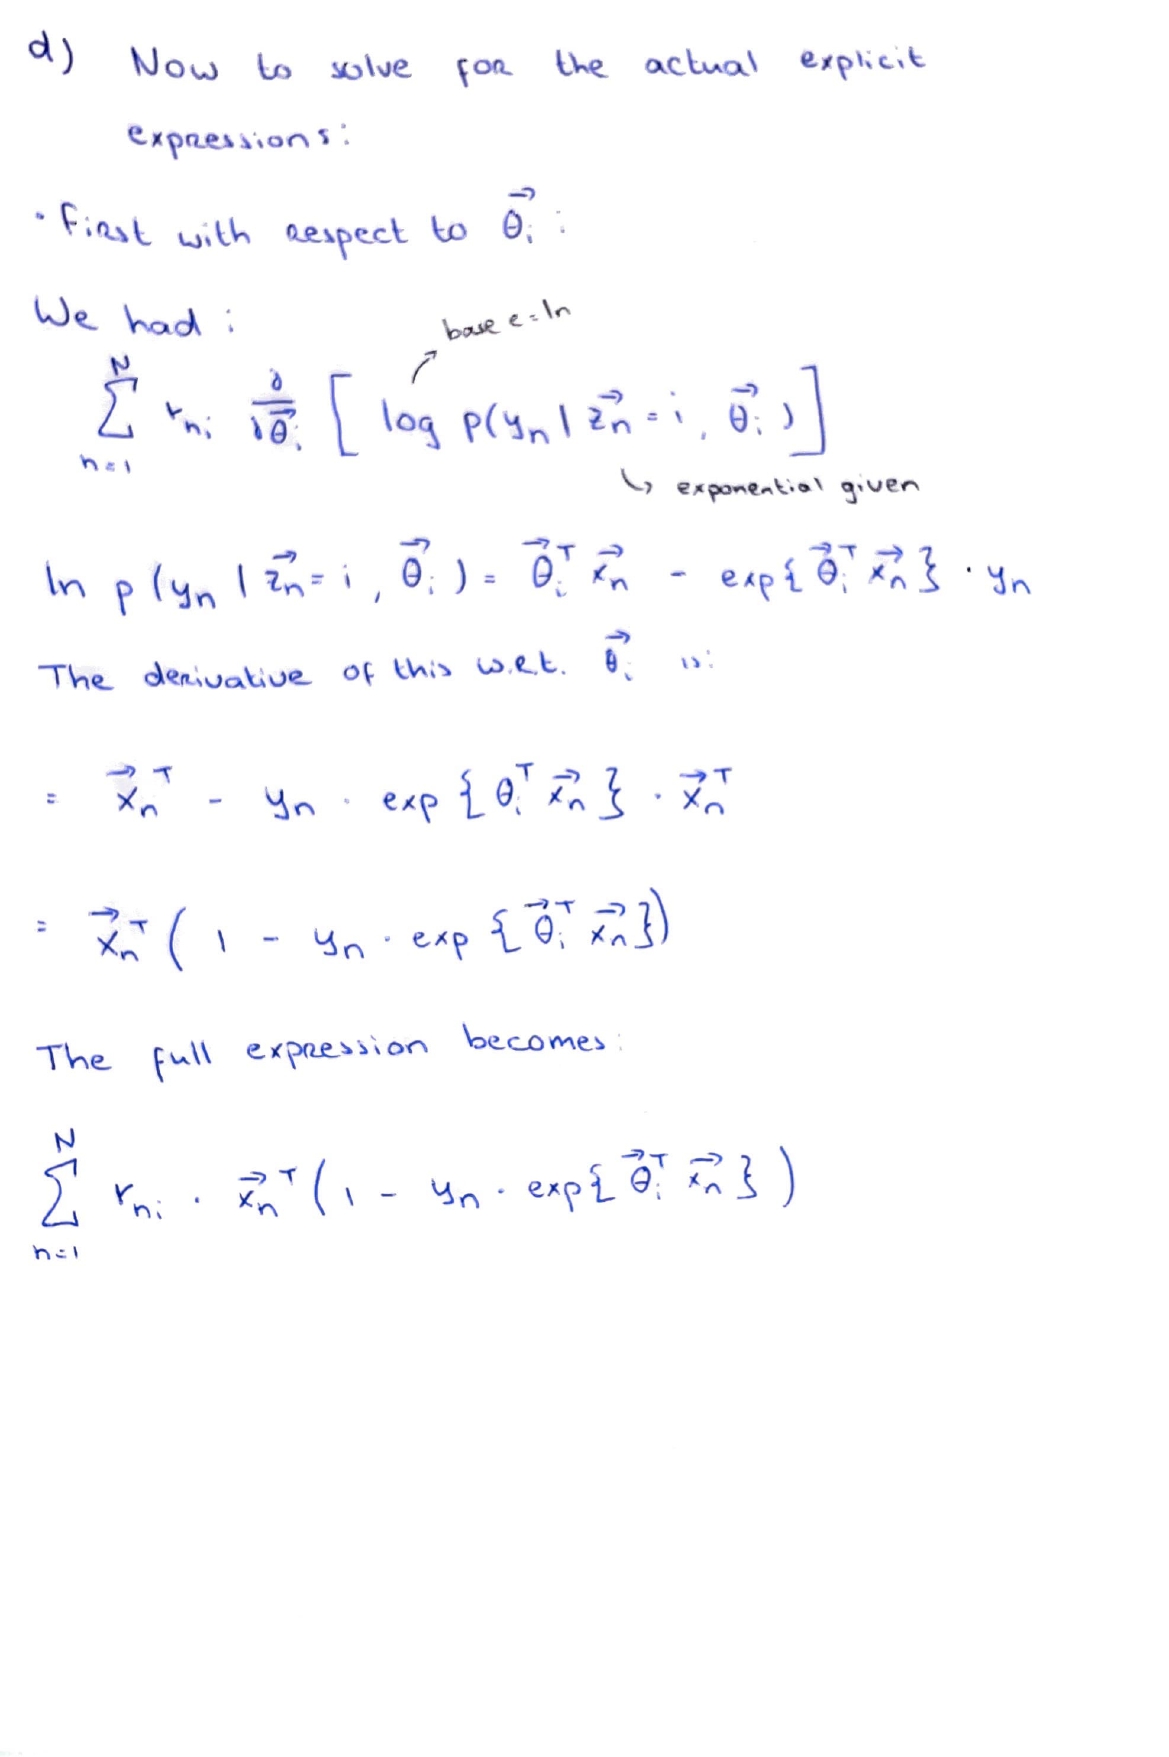 d) Now to solve for the actual explicit
expressions:
· First with respect to θ⃗ᵢ :
We had :
base e = ln
∑ₙ₌₁ᴺ rₙᵢ ∂/∂θ⃗ᵢ [ log p(yₙ | z⃗ₙ = i, θ⃗ᵢ ) ]
↳ exponential given
ln p (yₙ | z⃗ₙ = i , θ⃗ᵢ ) = θ⃗ᵢᵀ x⃗ₙ - exp{ θ⃗ᵢᵀ x⃗ₙ } · yₙ
The derivative of this w.r.t. θ⃗ᵢ is:
= x⃗ₙᵀ - yₙ · exp { θᵢᵀ x⃗ₙ } · x⃗ₙᵀ
= x⃗ₙᵀ ( 1 - yₙ · exp { θ⃗ᵢᵀ x⃗ₙ })
The full expression becomes:
∑ₙ₌₁ᴺ rₙᵢ · x⃗ₙᵀ ( 1 - yₙ · exp{ θ⃗ᵢᵀ x⃗ₙ } )